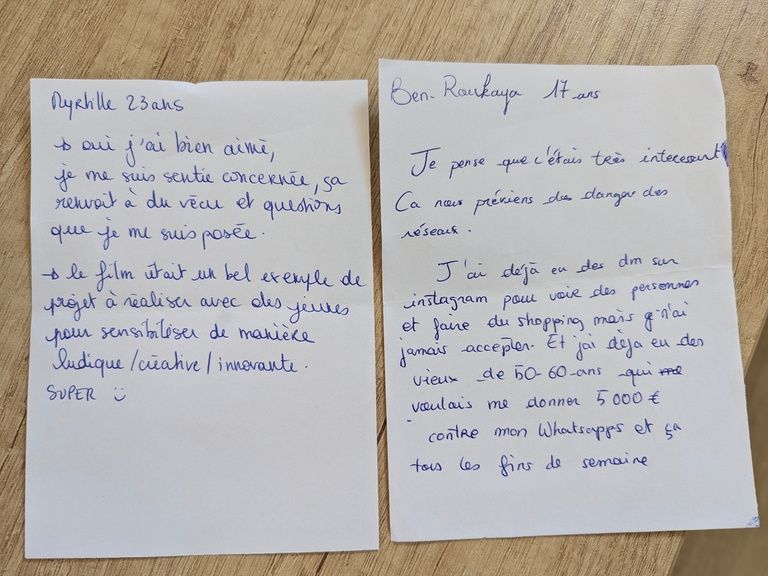 Myrtille 23 ans
→ oui j'ai bien aimé,
je me suis sentie concernée, ça
renvoit à du vécu et questions
que je me suis posée.
→ le film était un bel exemple de
projet à réaliser avec des jeunes
pour sensibiliser de manière
ludique/créative/innovante.
SUPER ☺
Ben-Roukaya 17 ans
Je pense que c'étais très interessant
Ca nous préviens des danger des
réseaux.
J'ai déjà eu des dm sur
instagram pour voir des personnes
et faire du shopping mais j'n'ai
jamais accepter. Et j'ai déja eu des
vieux de 50-60 ans qui me
voulais me donner 5000 €
contre mon Whatsapps et ça
tous les fins de semaine